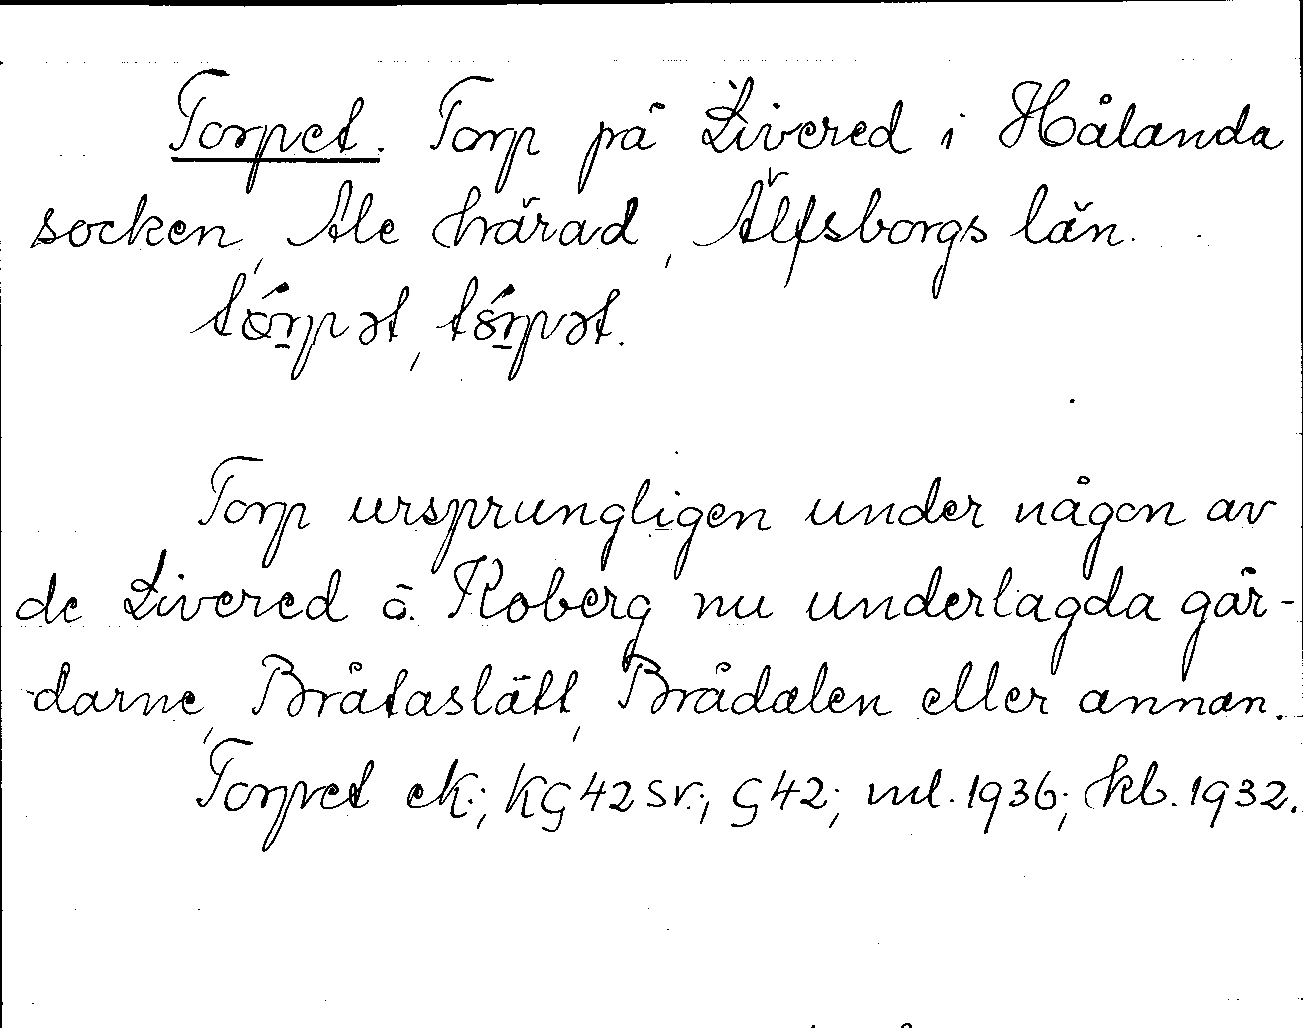 Torpet. Torp på Livered i Hålanda
socken, Ale härad, Älfsborgs län.
tórpət, tórpət.
Torp ursprungligen under någon av
de Livered å Koberg nu underlagda går-
darne, Bråtaslätt, Brådalen eller annan.
Torpet ek.; KG 42 sv.; G 42; ml. 1936; hkb. 1932.